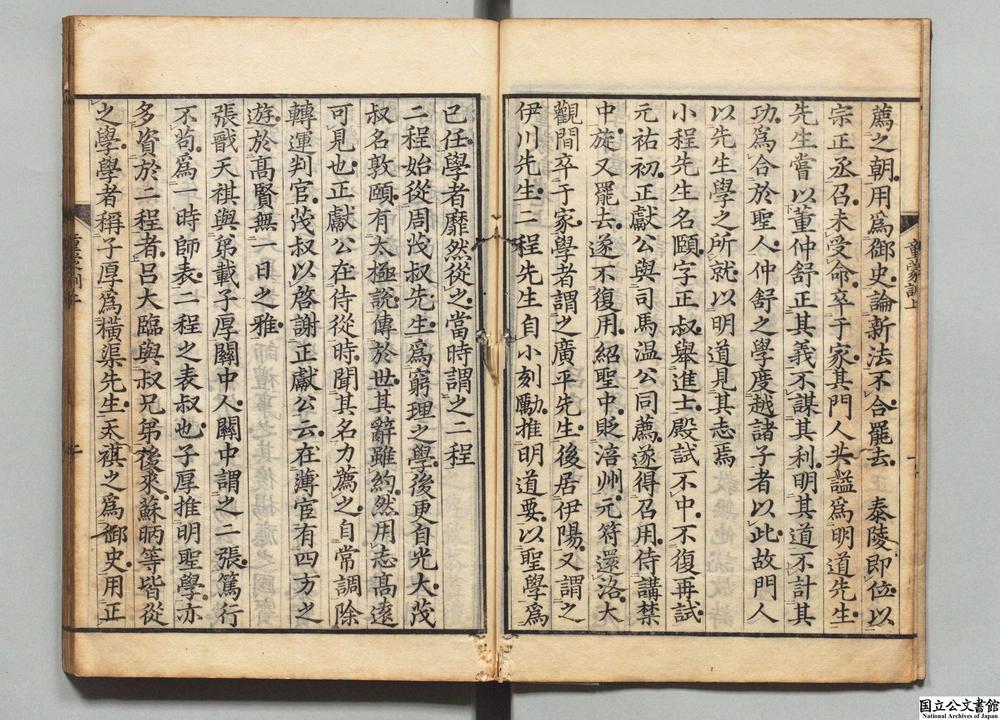 薦之朝用爲御史論新法不合罷去　泰陵即位以
宗正丞召未受命卒于家其門人共謚爲明道先生
先生嘗以董仲舒正其義不謀其利明其道不計其
功爲合於聖人仲舒之學度越諸子者以此故門人
以先生學之所就以明道見其志焉
小程先生名頤字正叔舉進士殿試不中不復再試
元祐初正獻公與司馬温公同薦遂得召用侍講禁
中旋又罷去遂不復用紹聖中貶涪州元符還洛大
觀間卒于家學者謂之廣平先生後居伊陽又謂之
伊川先生二程先生自小刻勵推明道要以聖學爲
己任學者靡然從之當時謂之二程
二程始從周茂叔先生爲窮理之學後更自光大茂
叔名敦頤有太極說傳於世其辭雖約然用志髙遠
可見也正獻公在侍從時聞其名力薦之自常調除
轉運判官茂叔以啓謝正獻公云在薄宦有四方之
遊於髙賢無一日之雅
張戩天祺與弟載子厚關中人關中謂之二張篤行
不苟爲一時師表二程之表叔也子厚推明聖學亦
多資於二程者吕大臨與叔兄弟後來蘇昞等皆從
之學學者稱子厚爲横渠先生天祺之爲御史用正
童蒙訓上
国立公文書館
National Archives of Japan